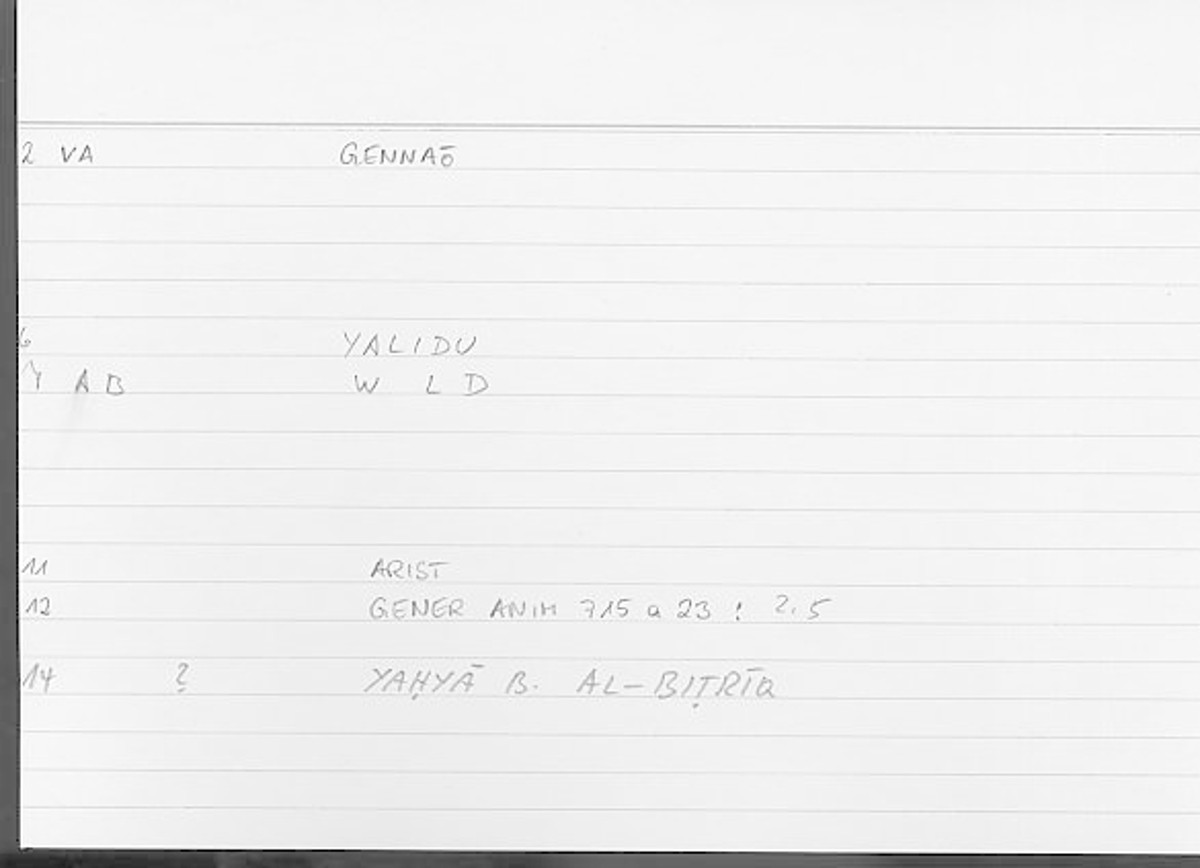 2 VA GENNAŌ
6 YALIDU
Y A B W L D
11 ARIST
12 GENER ANIM 715 a 23 : 2.5
14 ? YAḤYĀ B. AL-BIṬRĪQ